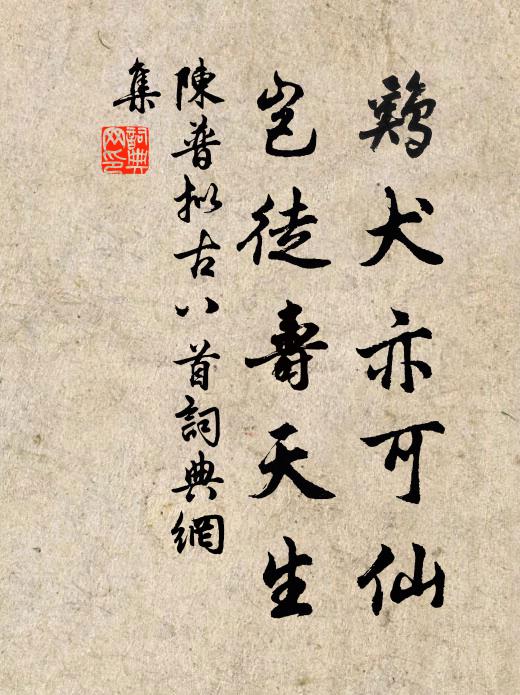 鷄犬亦可仙
豈徒壽天生
陳普拟古八首詞典網
集
詞典
网印